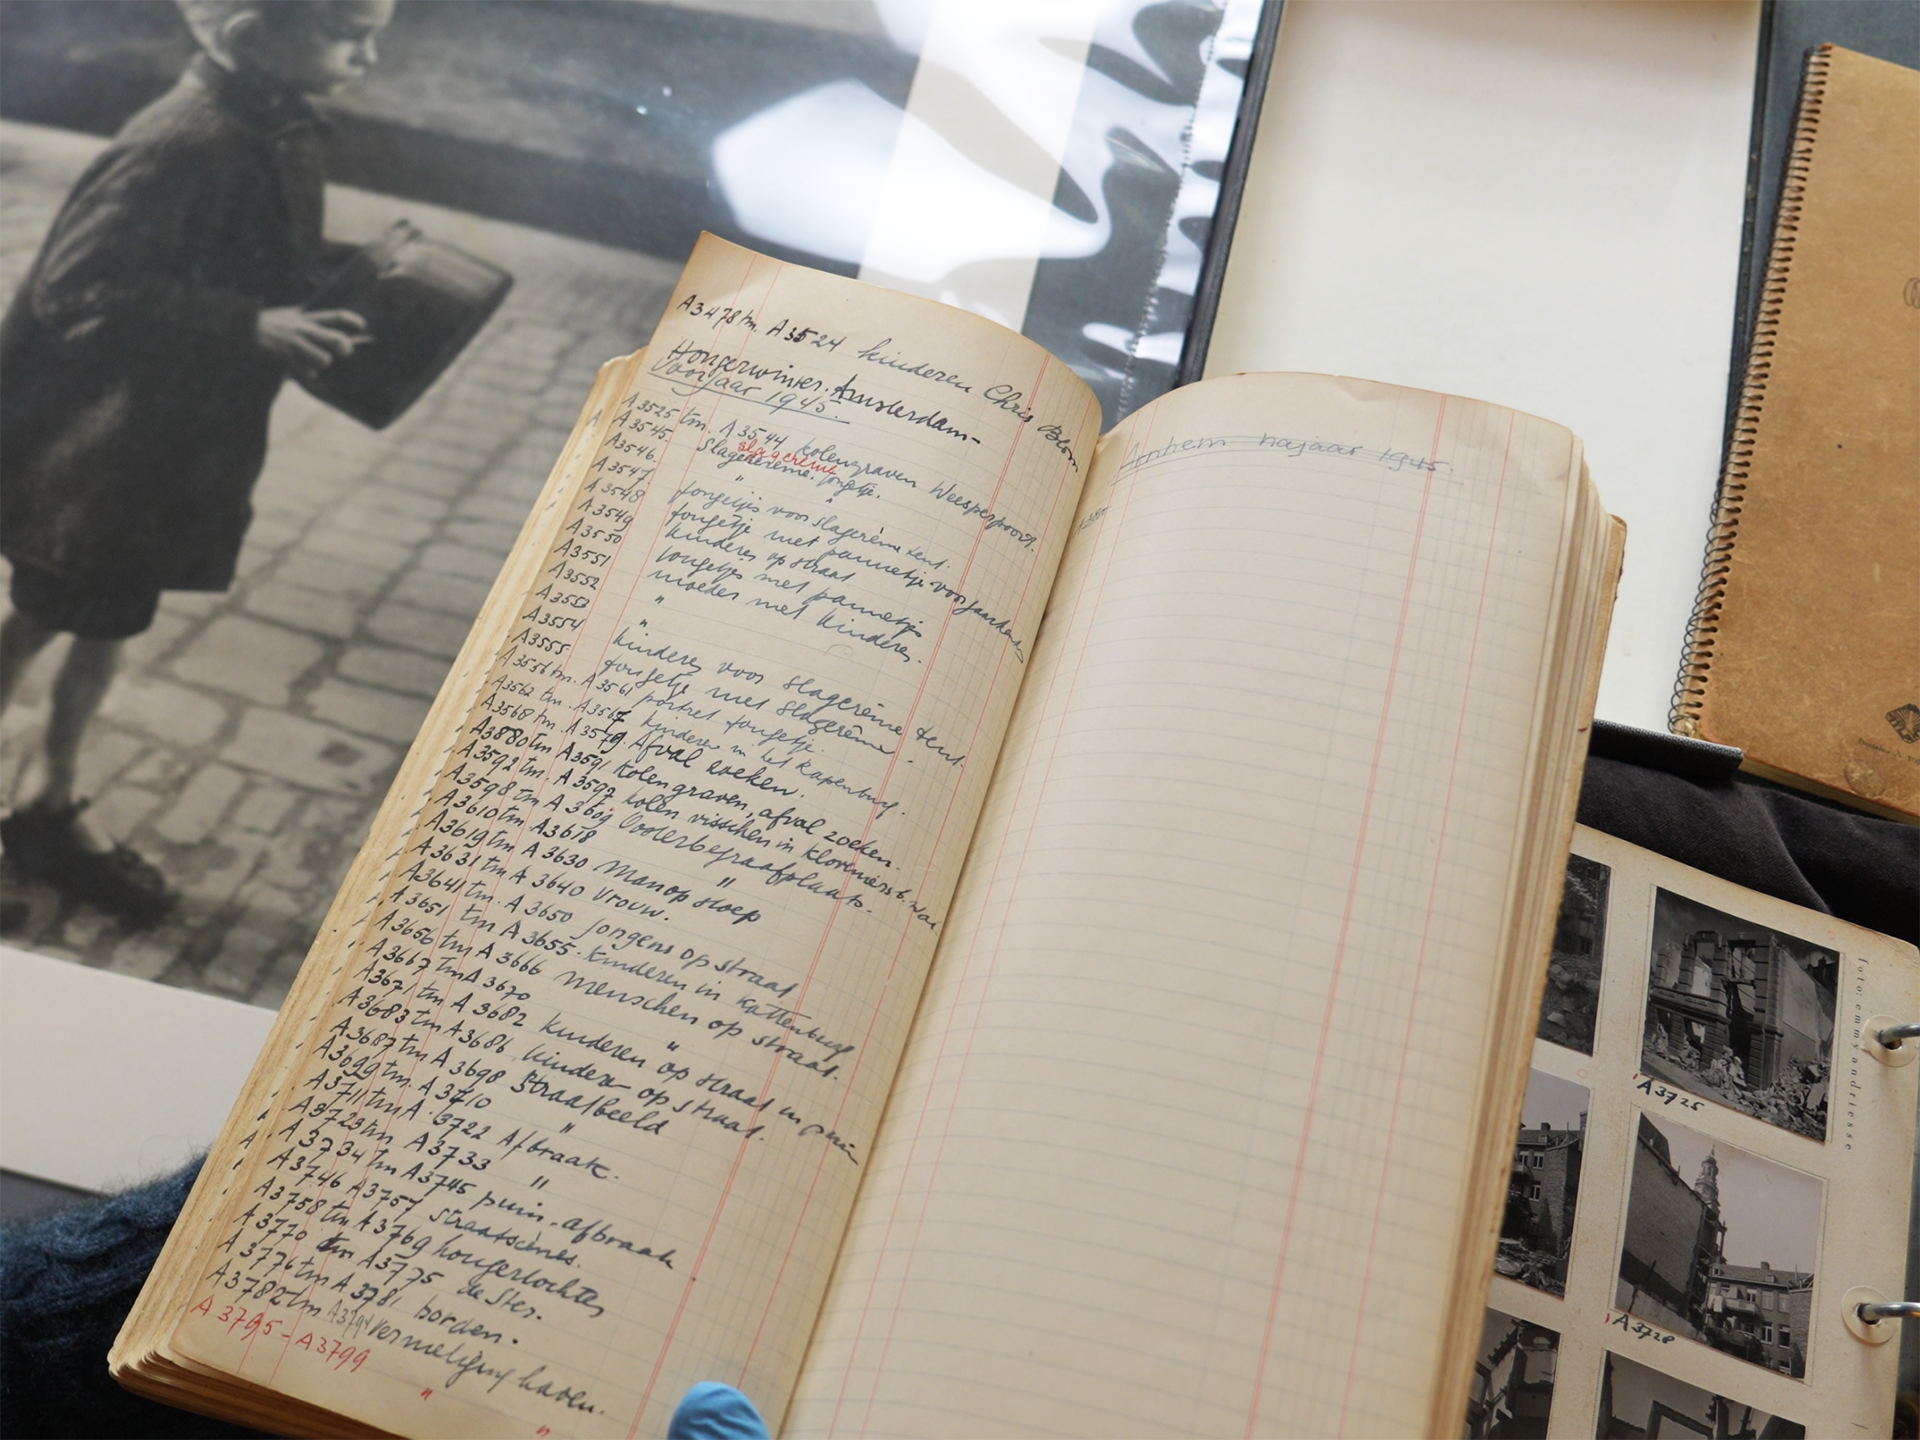 A3478 tm. A3524 kinderen Chris Blom
Hongerwinter. Amsterdam-
Voorjaar 1945.
A3525 tm. A3544 kolengraven Weesperpoort.
A3545. Slagcrème. jongetje.
slagcrème
A3546. " "
A3547 jongetjes voor slagcrème tent.
A3548 jongetje met pannetje voor
A3549 kinderen op straat
A3550 jongetjes met pannetjes
A3551 moeder met kinderen.
A3552 "
A3553 "
A3554 kinderen voor slagcrème tent.
A3555 jongetje met slagcrème.
A3556 tm. A3561 portret jongetje.
A3562 tm. A3567 kinderen in het Rapenburg.
A3568 tm. A3579. Afval zoeken.
A3880 tm A3591 kolengraven, afval zoeken.
A3592 tm. A3597 kolen visschen in
A3598 tm A3609 Oosterbegraafplaats.
A3610 tm A3618 "
A3619 tm A3630 Man op stoep
A3631 tm A3640 Vrouw.
A3641 tm. A3650 jongens op straat
A3651 tm A3655. kinderen in Kattenburg
A3656 tm A3666 menschen op straat.
A3667 tm A3670 "
A3671 tm A3682 kinderen op straat in puin
A3683 tm A3686 kinderen op straat.
A3687 tm A3698 Straatbeeld
A3699 tm. A3710 "
A3711 tm A.3722 Afbraak.
A3723 tm A3733 "
A3734 tm A3745 puin-afbraak
A3746 A3757 straatscènes.
A3758 tm A3769 hongertochten
A3770 tm A3775 de Ster.
A3776 tm A3781 borden.
A3782 tm A3794 Vernieling haven.
A3795-A3799
" "
Arnhem najaar 1945.
foto emmy andriesse
A3725
A3728